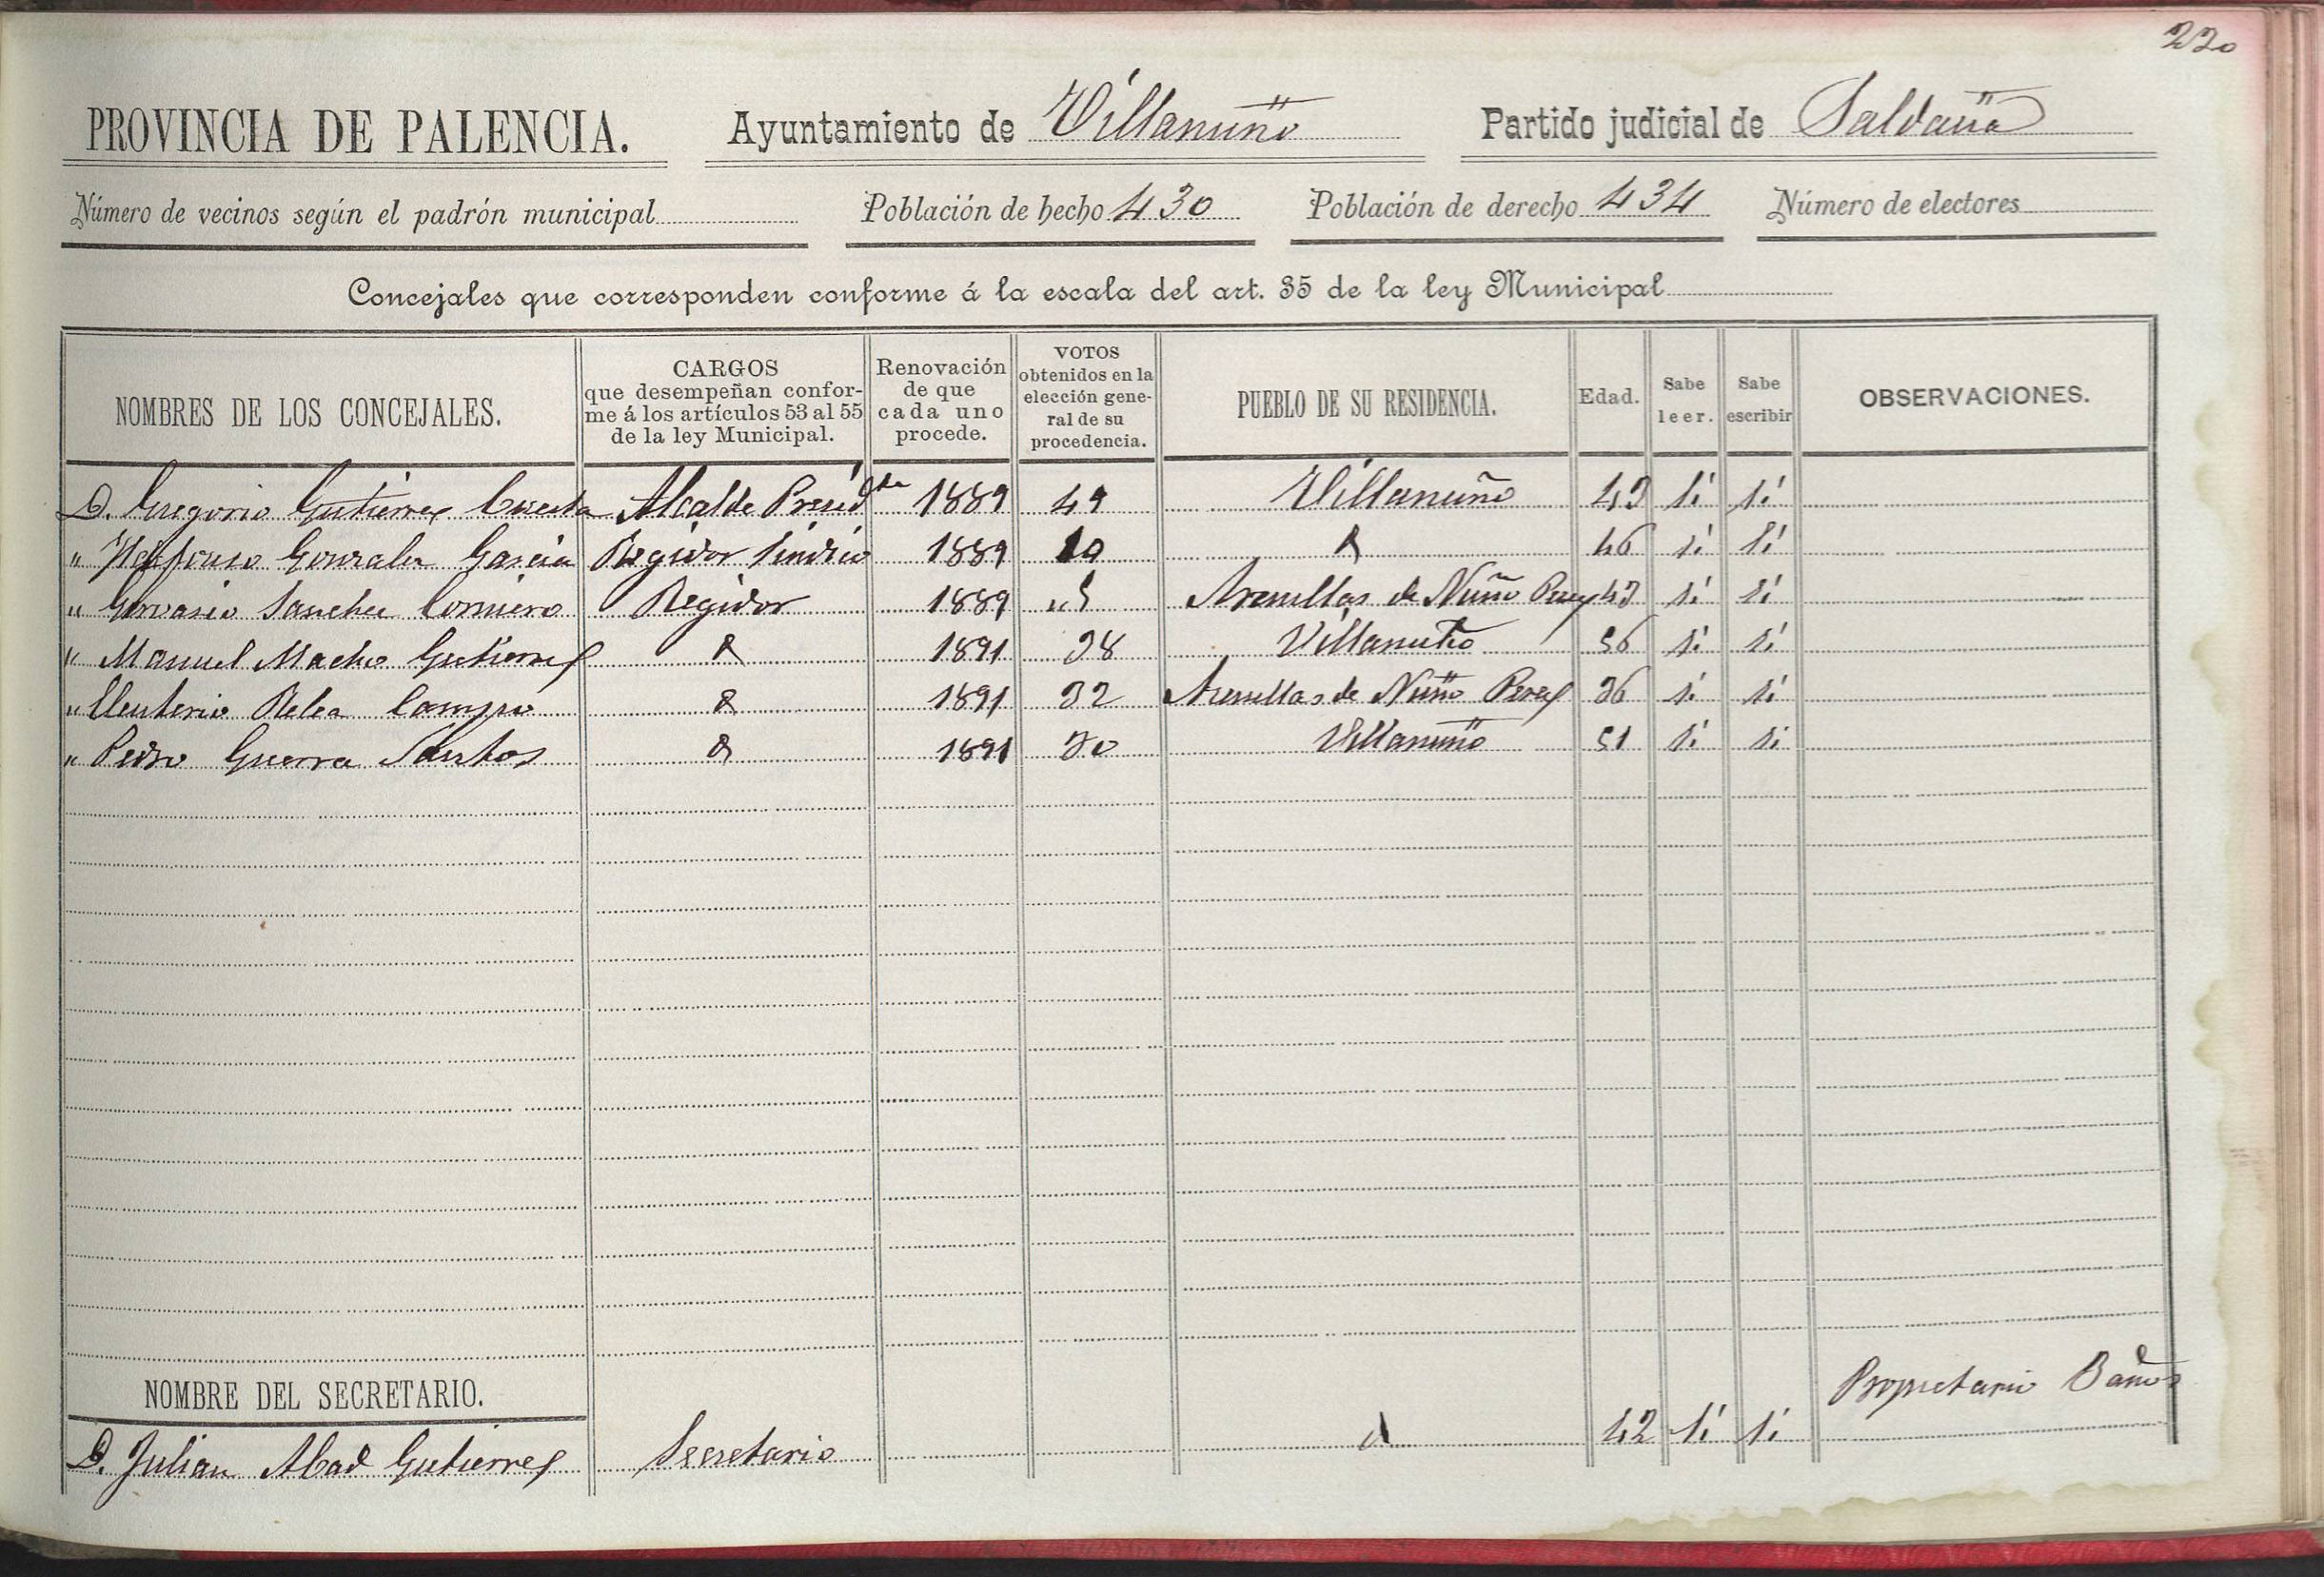 220
PROVINCIA DE PALENCIA. Ayuntamiento de Villanuño Partido judicial de Saldaña
Número de vecinos según el padrón municipal Población de hecho 430 Población de derecho 434 Número de electores
Concejales que corresponden conforme á la escala del art. 35 de la ley Municipal
NOMBRES DE LOS CONCEJALES. CARGOS que desempeñan confor- me á los artículos 53 al 55 de la ley Municipal. Renovación de que cada uno procede. VOTOS obtenidos en la elección gene- ral de su procedencia. PUEBLO DE SU RESIDENCIA. Edad. Sabe leer. Sabe escribir OBSERVACIONES.
D. Gregorio Gutierrez Cuesta Alcalde Presidte 1889 49 Villanuño 43 Si Si
" Ildefonso Gonzalez Garcia Regidor Sindico 1889 46 Si Si
" Gervasio Sanchez Regidor 1889 Arenillas de Nuño Perez 43 Si Si
" Manuel Macho Gutierrez 1891 38 Villanuño 56 Si Si
" Eleuterio Relea Campo 1891 32 Arenillas de Nuño Perez 36 Si Si
" Pedro Guerra Santos 1891 30 Villanuño 51 Si Si
NOMBRE DEL SECRETARIO. Propietario
D. Julian Abad Gutierrez Secretario 42 Si Si